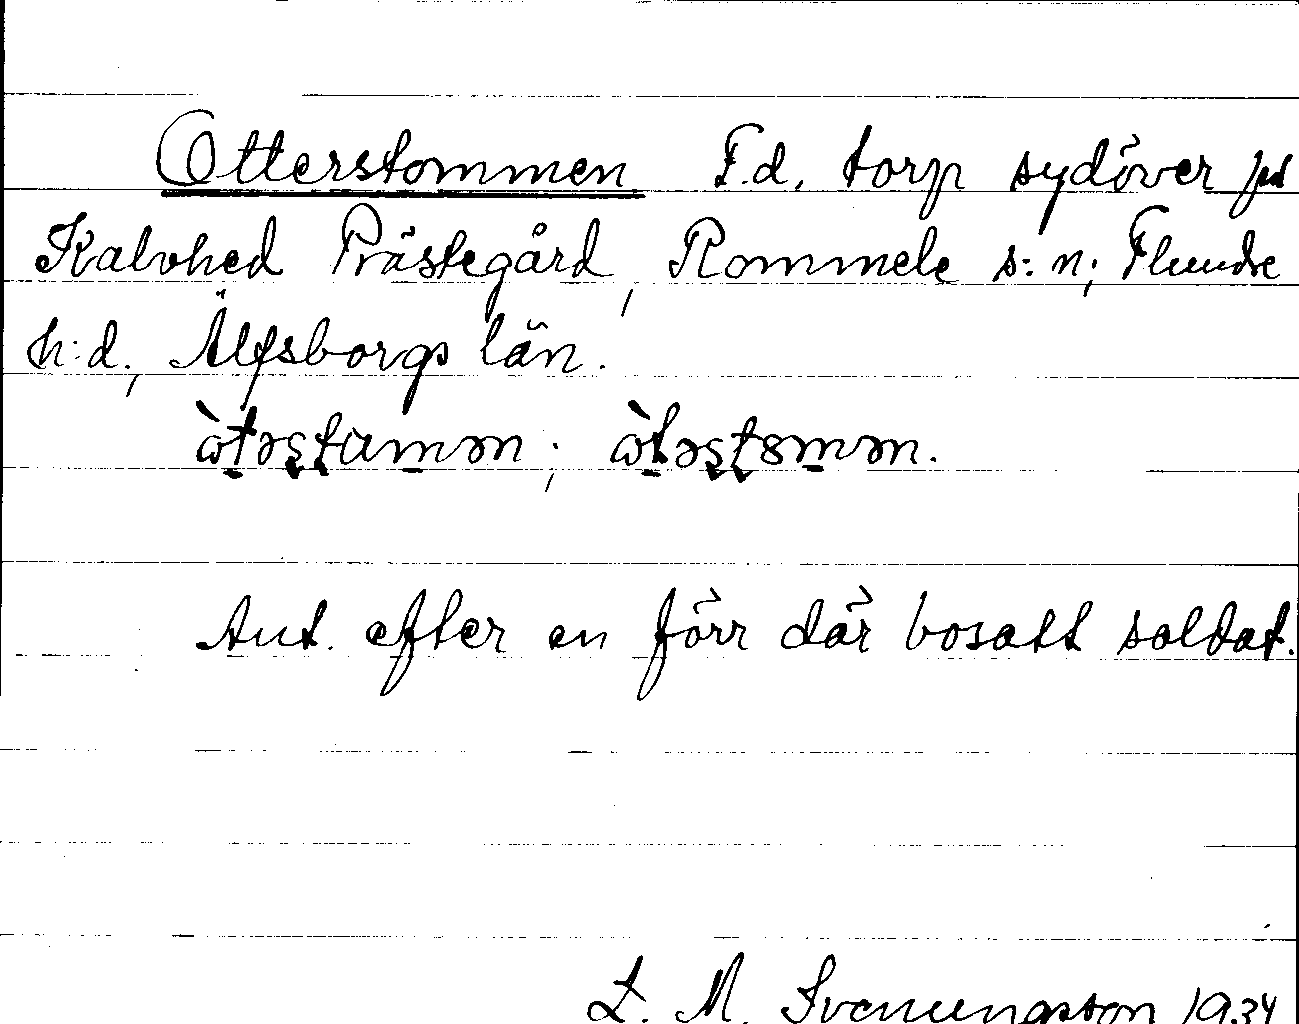 Otterstommen F.d. torp sydöver på
Kalvhed Prästegård, Rommele s:n; Flundre
h:d., Älfsborgs län.
ɷ̀təstamən; ɷ̀təstɞmən.
Ant. efter en förr där bosatt soldat.
L. M. Svenungsson 1934